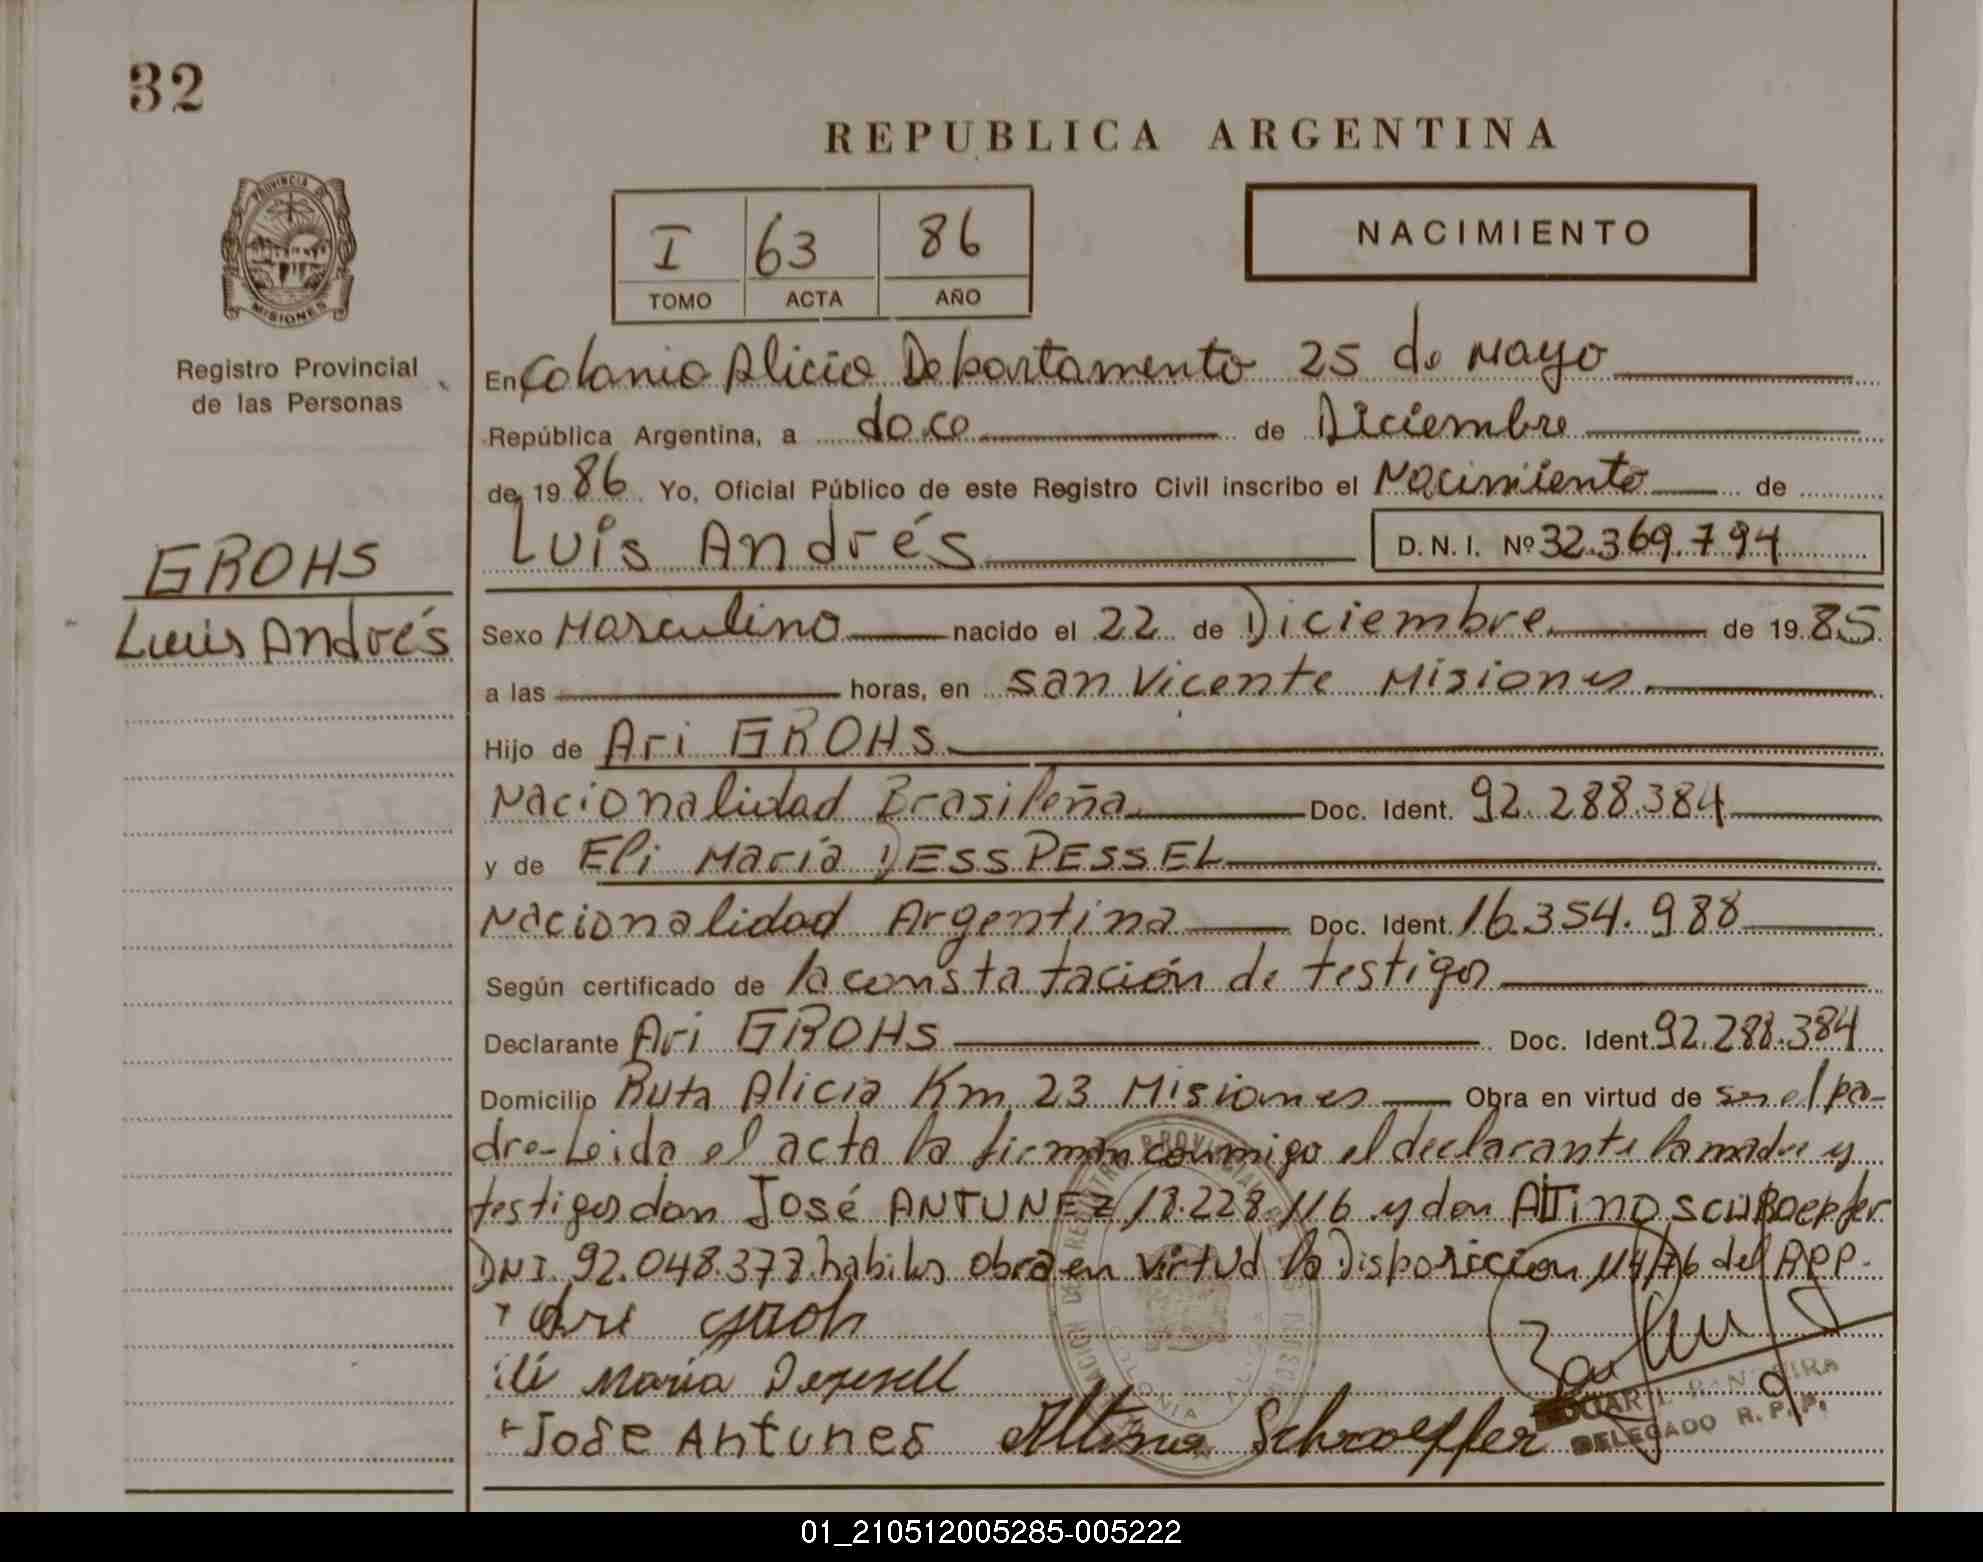 32
REPUBLICA ARGENTINA
PROVINCIA DE
MISIONES
I 63 86
TOMO ACTA AÑO
NACIMIENTO
Registro Provincial
de las Personas
En Colonia Alicia Departamento 25 de Mayo
República Argentina, a doce de Diciembre
de 1986 Yo, Oficial Público de este Registro Civil inscribo el Nacimiento de
Luis Andrés D.N.I. Nº 32.369.794
GROHS
Luis Andrés
Sexo Masculino nacido el 22 de Diciembre de 1985
a las horas, en San Vicente Misiones.
Hijo de Ari GROHS
Nacionalidad Brasileña Doc. Ident. 92.288.384
y de Eli María DESSPESSEL
Nacionalidad Argentina Doc. Ident. 16.354.988
Según certificado de la constatación de testigos
Declarante Ari GROHS Doc. Ident. 92.288.384
Domicilio Ruta Alicia Km 23 Misiones Obra en virtud de ser el pa-
dre-Leida el acta la firman conmigo el declarante la madre y
testigos don José ANTUNEZ 18.228.116 y don
DNI. 92.048.378 habiles obra en virtud la Disposicion 114/76 del
María
Jose Antunes Schroepffer
DELEGADO R.P.P.
01_210512005285-005222